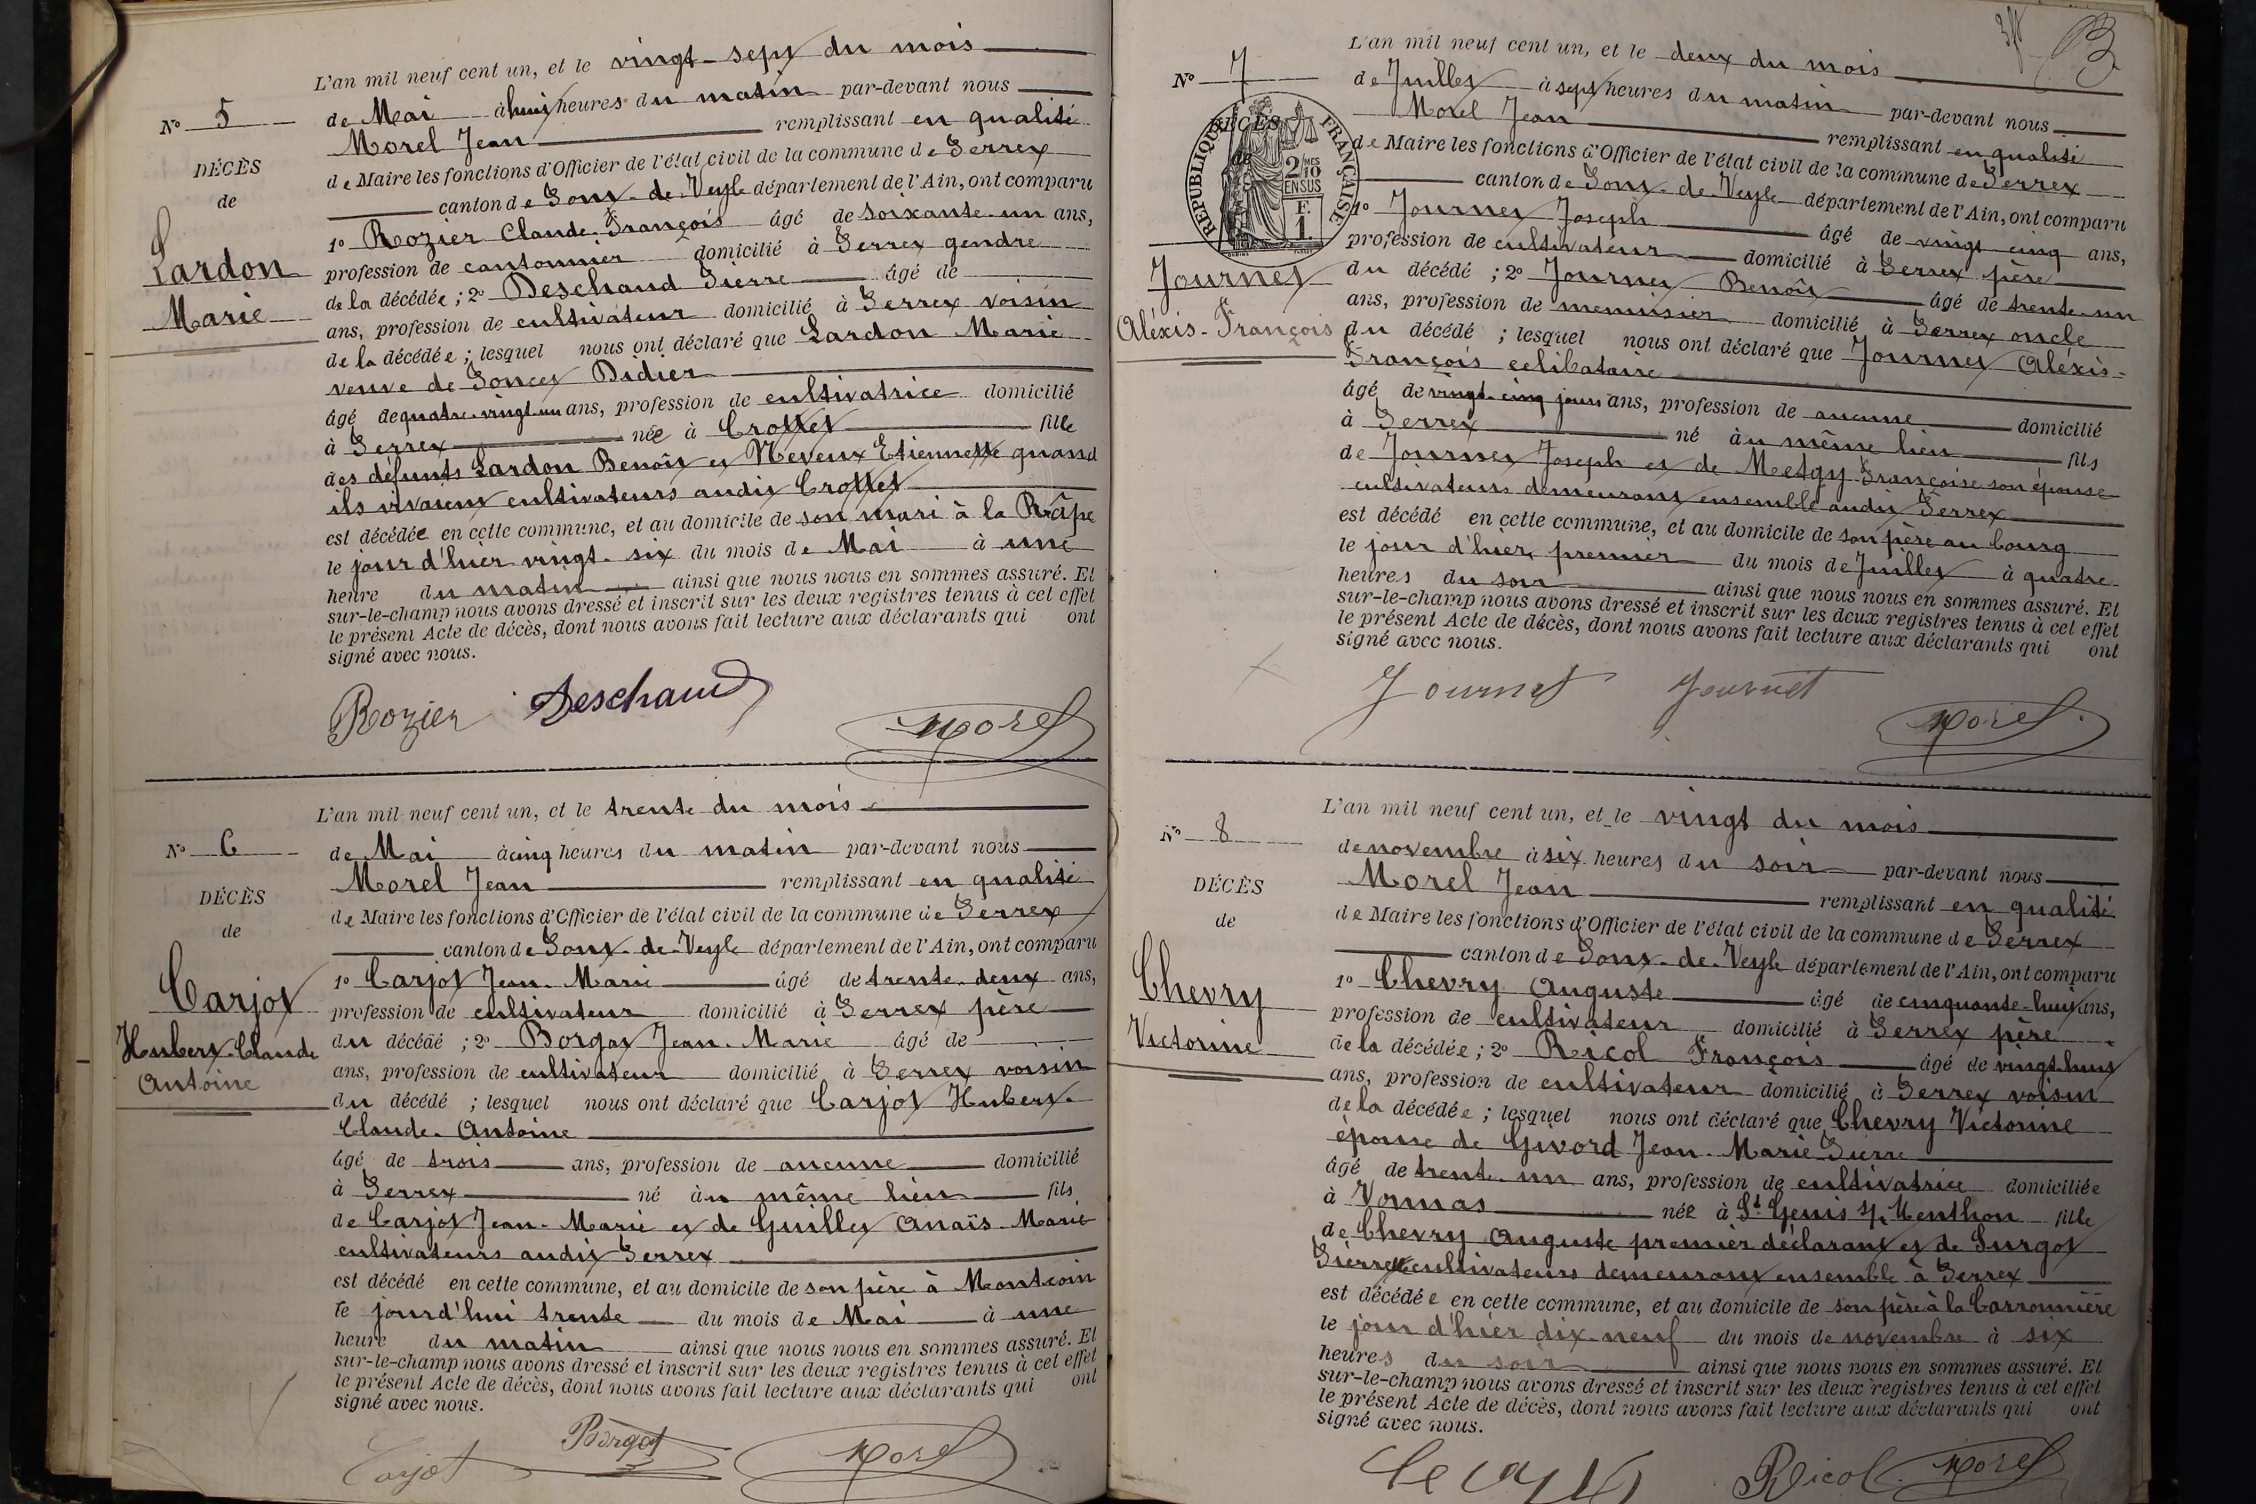 N° 5
DÉCÈS
de
Lardon
Marie
L'an mil neuf cent un, et le vingt-sept du mois
de Mai à huit heures du matin par-devant nous
Morel Jean remplissant en qualité
de Maire les fonctions d'Officier de l'état civil de la commune de Perrex
canton de Pont-de-Veyle département de l'Ain, ont comparu
1° Rozier Claude-François âgé de soixante-un ans,
profession de cantonnier domicilié à Perrex gendre
de la décédée ; 2° Deschaud Pierre âgé de
ans, profession de cultivateur domicilié à Perrex voisin
de la décédée ; lesquel nous ont déclaré que Lardon Marie
veuve de Poncet Didier
âgé de quatre-vingt-un ans, profession de cultivatrice domicilié
à Perrex née à Crottet fille
des défunts Lardon Benoît et Neveux Etiennette quand
ils vivaient cultivateurs audit Crottet
est décédée en cette commune, et au domicile de son mari à la Râpe
le jour d'hier vingt-six du mois de Mai à une
heure du matin ainsi que nous nous en sommes assuré. Et
sur-le-champ nous avons dressé et inscrit sur les deux registres tenus à cet effet
le présent Acte de décès, dont nous avons fait lecture aux déclarants qui ont
signé avec nous.
Rozier Deschaud Morel
N° 6
DÉCÈS
de
Carjot
Hubert-Claude
Antoine
L'an mil neuf cent un, et le trente du mois
de Mai à cinq heures du matin par-devant nous
Morel Jean remplissant en qualité
de Maire les fonctions d'Officier de l'état civil de la commune de Perrex
canton de Pont-de-Veyle département de l'Ain, ont comparu
1° Carjot Jean-Marie âgé de trente-deux ans,
profession de cultivateur domicilié à Perrex père
du décédé ; 2° Borgat Jean-Marie âgé de
ans, profession de cultivateur domicilié à Perrex voisin
du décédé ; lesquel nous ont déclaré que Carjot Hubert-
Claude-Antoine
âgé de trois ans, profession de aucune domicilié
à Perrex né au même lieu fils
de Carjot Jean-Marie et de Guillet Anaïs-Marie
cultivateurs audit Perrex
est décédé en cette commune, et au domicile de son père à Montcoin
le jourd'hui trente du mois de Mai à une
heure du matin ainsi que nous nous en sommes assuré. Et
sur-le-champ nous avons dressé et inscrit sur les deux registres tenus à cet effet
le présent Acte de décès, dont nous avons fait lecture aux déclarants qui ont
signé avec nous.
Carjot Borgat Morel
N° 7
DÉCÈS
de
RÉPUBLIQUE FRANÇAISE
2/10
EN SUS
F.
1.
Journet
Aléxis-François
L'an mil neuf cent un, et le deux du mois
de Juillet à sept heures du matin par-devant nous
Morel Jean remplissant en qualité
de Maire les fonctions d'Officier de l'état civil de la commune de Perrex
canton de Pont-de-Veyle département de l'Ain, ont comparu
1° Journet Joseph âgé de vingt cinq ans,
profession de cultivateur domicilié à Perrex père
du décédé ; 2° Journet Benoît âgé de trente-un
ans, profession de menuisier domicilié à Perrex oncle
du décédé ; lesquel nous ont déclaré que Journet Aléxis-
François célibataire
âgé de vingt-cinq jours ans, profession de aucune domicilié
à Perrex né au même lieu fils
de Journet Joseph et de Metgy Françoise son épouse
cultivateurs demeurant ensemble audit Perrex
est décédé en cette commune, et au domicile de son père au bourg
le jour d'hier, premier du mois de Juillet à quatre
heures du soir ainsi que nous nous en sommes assuré. Et
sur-le-champ nous avons dressé et inscrit sur les deux registres tenus à cet effet
le présent Acte de décès, dont nous avons fait lecture aux déclarants qui ont
signé avec nous.
Journet Journet Morel
N° 8
DÉCÈS
de
Chevry
Victorine
L'an mil neuf cent un, et le vingt du mois
de novembre à six heures du soir par-devant nous
Morel Jean remplissant en qualité
de Maire les fonctions d'Officier de l'état civil de la commune de Perrex
canton de Pont-de-Veyle département de l'Ain, ont comparu
1° Chevry Auguste âgé de cinquante-huit ans,
profession de cultivateur domicilié à Perrex père
de la décédée ; 2° Ricol François âgé de vingt-huit
ans, profession de cultivateur domicilié à Perrex voisin
de la décédée ; lesquel nous ont déclaré que Chevry Victorine
épouse de Givord Jean-Marie-Pierre
âgé de trente-un ans, profession de cultivatrice domiciliée
à Vonnas née à St Genis s/ Menthon fille
de Chevry Auguste premier déclarant et de Purgot
Pierrette cultivateurs demeurant ensemble à Perrex
est décédée en cette commune, et au domicile de son père à la Carronnière
le jour d'hier dix-neuf du mois de novembre à six
heures du soir ainsi que nous nous en sommes assuré. Et
sur-le-champ nous avons dressé et inscrit sur les deux registres tenus à cet effet
le présent Acte de décès, dont nous avons fait lecture aux déclarants qui ont
signé avec nous.
Ricol Morel